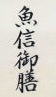 魚信御膳